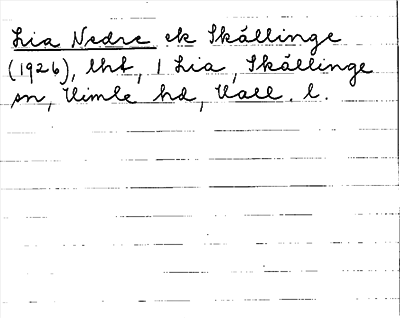 Lia Nedre ek Skällinge
(1926), lht, 1 Lia, Skällinge
sn, Himle hd, Hall. l.